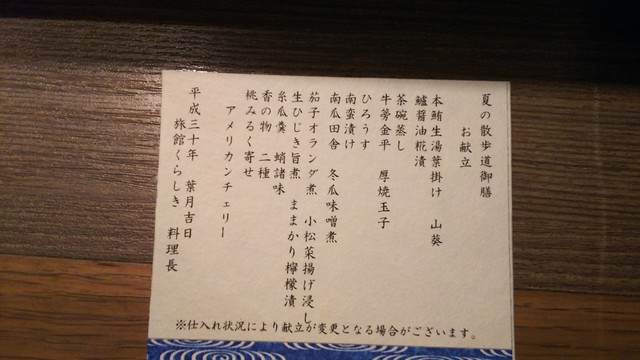 夏の散歩道御膳
お献立
本鮪生湯葉掛け 山葵
鱸醤油糀漬
茶碗蒸し
牛蒡金平 厚焼玉子
ひろうす
南蛮漬け
南瓜田舎 冬瓜味噌煮
茄子オランダ煮 小松菜揚げ浸し
生ひじき旨煮 ままかり檸檬漬
糸瓜羹 蛸諸味
香の物 二種
桃みるく寄せ
アメリカンチェリー
平成三十年 葉月吉日
旅館くらしき 料理長
※仕入れ状況により献立が変更となる場合がございます。